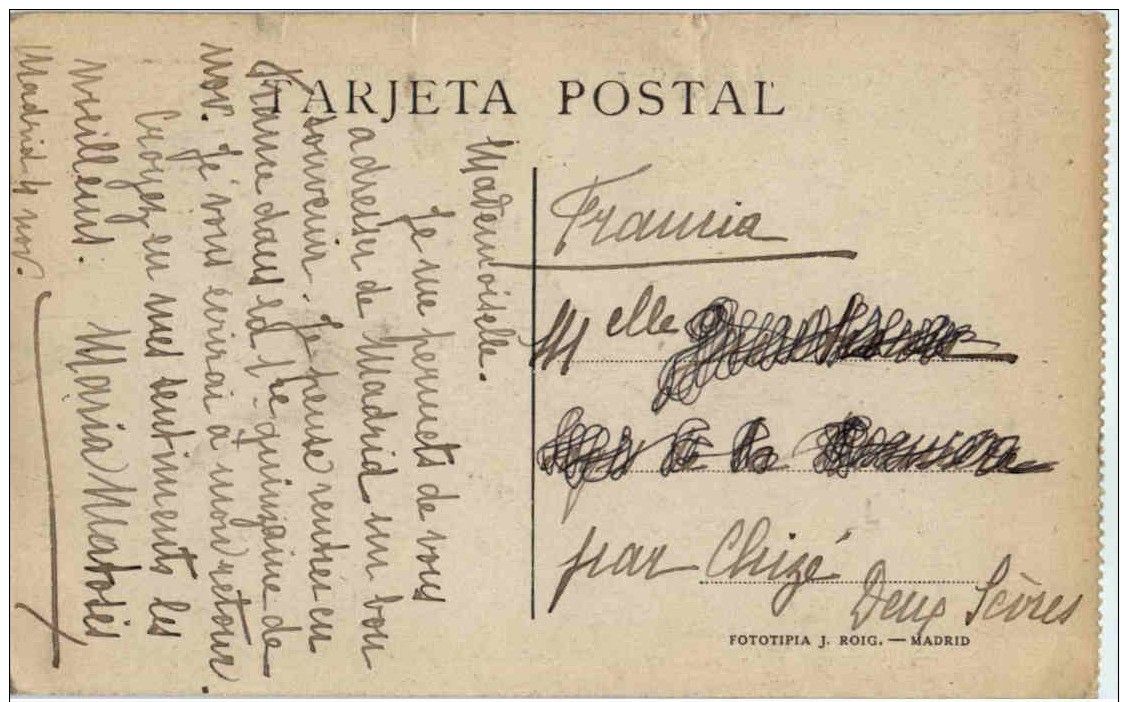 TARJETA POSTAL
Mademoiselle.
Je me permets de vous
adresser de Madrid un bon
souvenir. Je pense rentrer en
France dans la 1re quinzaine de
nov. Je vous écrirai à mon retour.
Croyez en mes sentiments les
meilleurs.
Maria Matoses
Madrid 4 nov.
Francia
Melle
par Chizé
Deux Sèvres
FOTOTIPIA J. ROIG. — MADRID